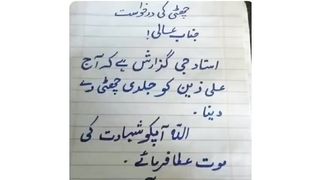 چھٹی کی درخواست
جناب عالی!
استاد جی گزارش ہے کہ آج
علی زین کو جلدی چھٹی دے
دینا۔
اللہ آپکو شہادت کی
موت عطا فرمائے۔